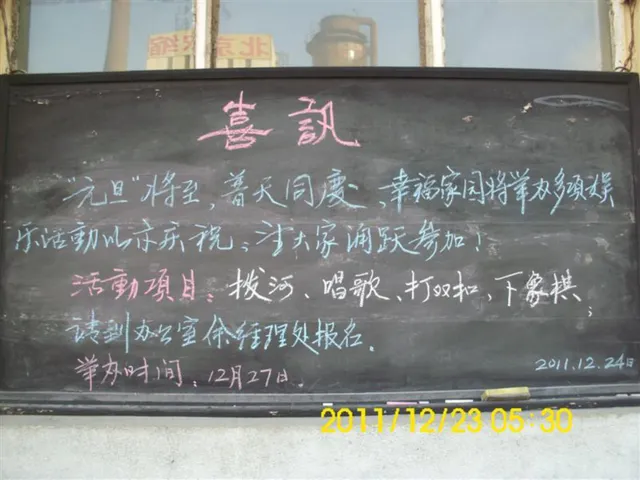 北京浓缩
喜訊
"元旦"将至，普天同慶、幸福家园将举办多项娱
乐活動以示庆祝，望大家涌跃参加！
活動项目：拨河、唱歌、打双扣、下象棋；
请到办公室余经理处报名.
举办时间：12月27日.
2011.12.24日
2011/12/23 05:30